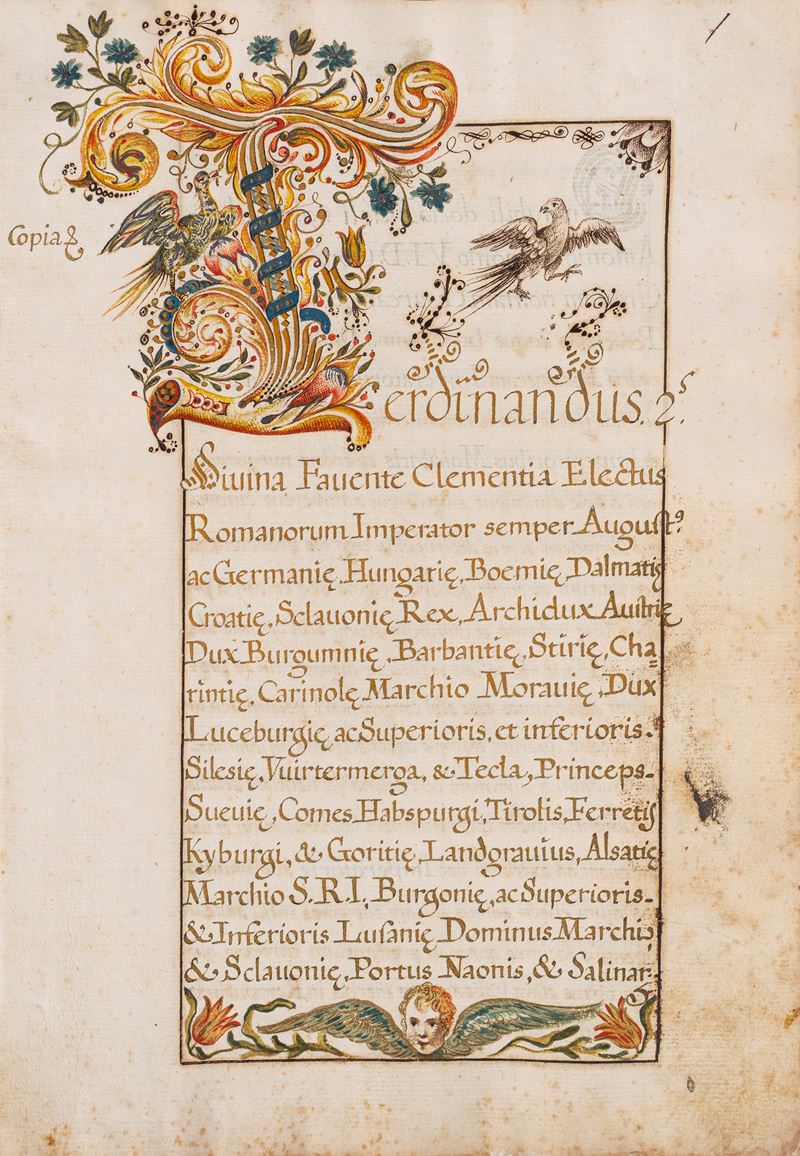 Copia
Ferdinandus. 2.s
Diuina Fauente Clementia Electus
Romanorum Imperator semper August9
ac Germanię, Hungarię, Boemię, Dalmatię
Croatię, Sclauonię Rex, Archidux Austrię
Dux Burgumnię, Barbantię, Stirię, Cha=
rintię, Carinolę Marchio Morauię Dux
Luceburgię ac Superioris, et inferioris.
Silesię, Vuirtermerga, & Tecla, Princeps.
Sueuię, Comes Habspurgi, Tirolis, Ferretis
Kyburgi, & Goritię, Landgrauius, Alsatię
Marchio S.R.I. Burgonię, ac Superioris.
& Inferioris Lusanię Dominus Marchię
& Sclauonię, Portus Naonis, & Salinar.